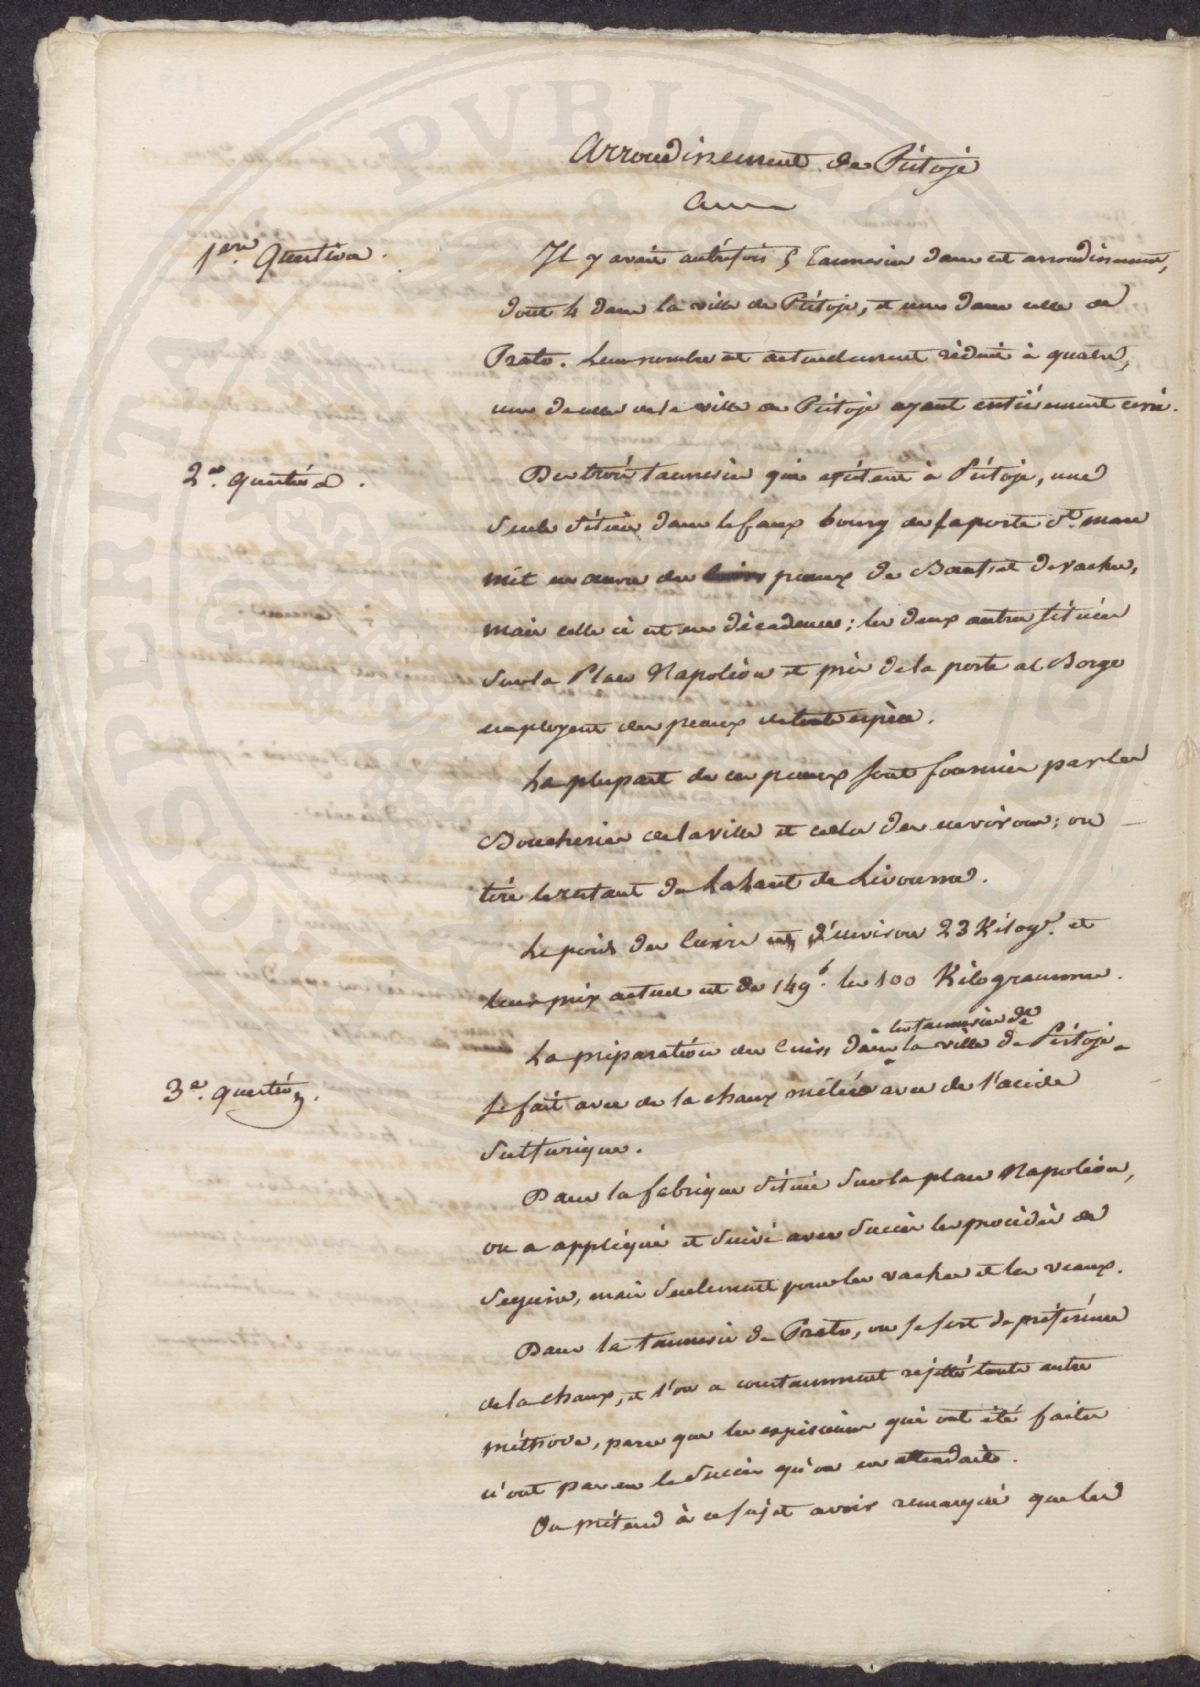 Arrondissement de Pistoje
1ere Question.
Il y avait autrefois 5 Tanneries dans cet arrondissement,
dont 4 dans la ville de Pistoje, et une dans celle de
Prato. Leur nombre est actuellement réduit à quatre,
une de celles de la ville de Pistoje ayant entièrement cessé.
2e. question.
Des trois tanneries qui existent à Pistoje, une
seule située dans le faux bourg de la porte St. marc
met en œuvre des peaux de Bœufs et de vaches,
mais celle ci est en décadence; les deux autres situées
sur la Place Napoléon et près de la porte al Borgo
employent des peaux de toute espèce.
La plupart de ces peaux sont fournies par les
Boucheries de la ville et celles des environs; on
tire le restant du Levant de Livourne.
Le poids des cuirs est d'environ 23 Kilogr. et
leur prix actuel est de 149f. les 100 Kilogrammes.
3e. question.
La préparation des cuirs dans les tanneries de la ville de Pistoje
se fait avec de la chaux mêlée avec de l'acide
sulfurique.
Dans la fabrique située sur la place Napoléon,
on a appliqué et suivi avec succès les procédés de
Seguin, mais seulement pour les vaches et les veaux.
Dans la tannerie de Prato, on se sert de préférence
de la chaux, et l'on a constamment rejetté toute autre
méthode, parce que les expériences qui ont été faites
n'ont pas eu le succès qu'on en attendait.
On prétend à ce sujet avoir remarqué que les